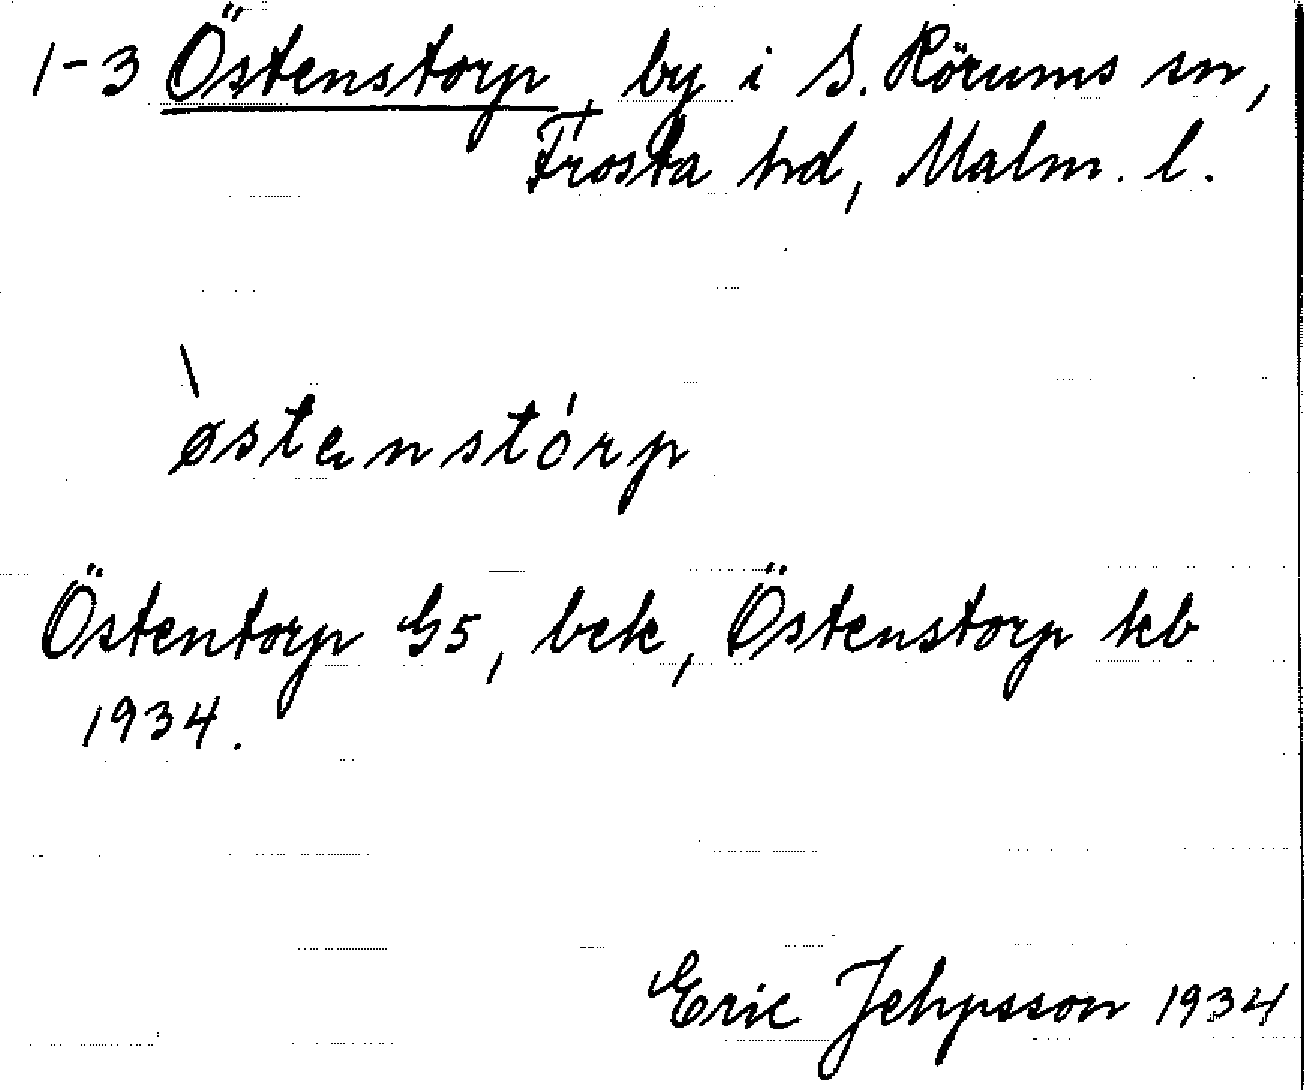 1-3 Östenstorp, by i S. Rörums sn,
Frosta hd, Malm. l.
\østenstórp
Östentorp G5, bek, Östenstorp kb
1934.
Eric Jehpsson 1934